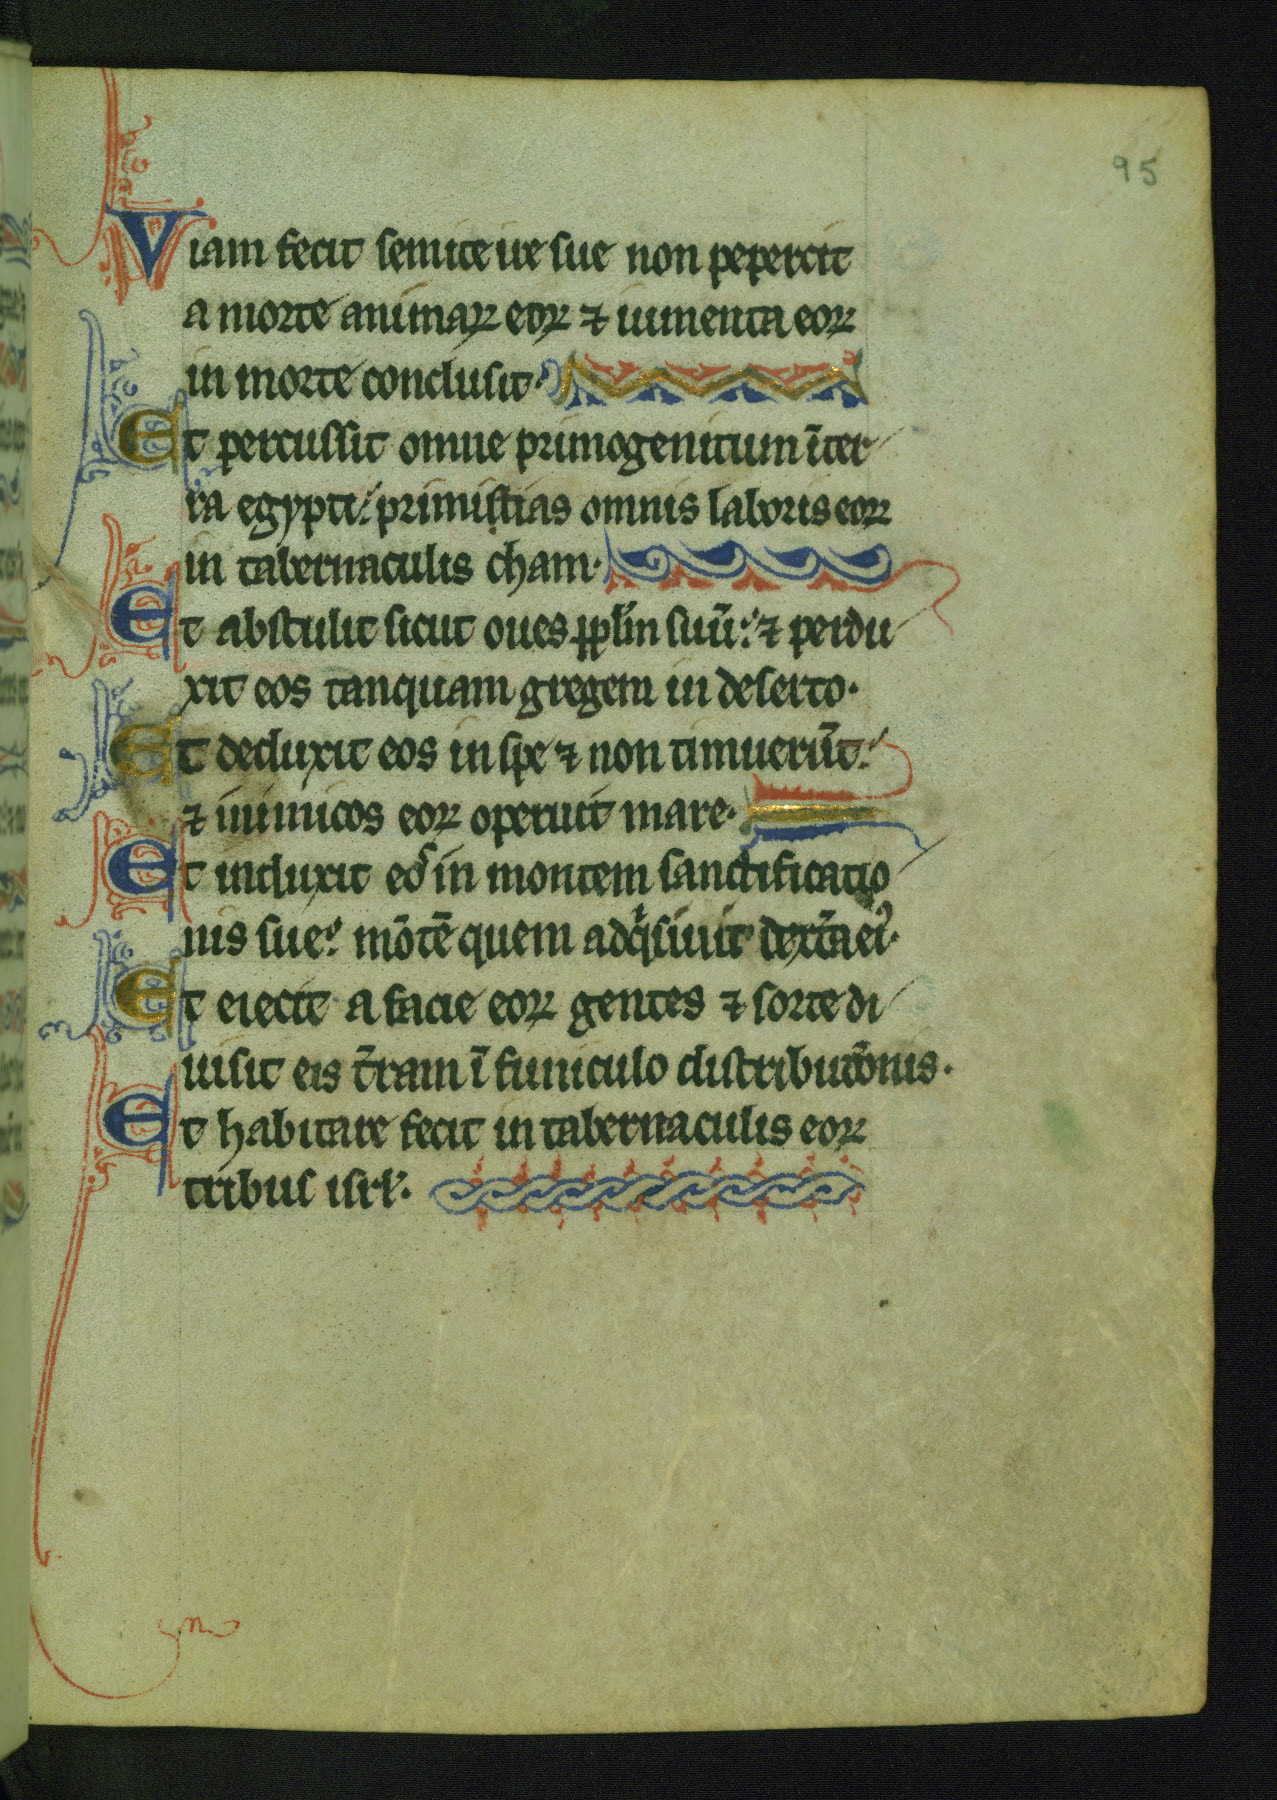 95
Viam fecit semite ire sue non pepercit
a morte animaꝝ eoꝝ ⁊ iumenta eoꝝ
in morte conclusit·
Et percussit omne primogenitum īter
ra egypti: primistias omnis laboris eoꝝ
in tabernaculis cham·
Et abstulit sicut oues pp̄lm suū: ⁊ perdu
xit eos tanquam gregem in deserto·
Et deduxit eos in spe ⁊ non timuerūt:
⁊ inimicos eoꝝ operuit mare·
Et induxit eos in montem sanctificatio
nis sue: mōtē quem adqͥsiuit dext̄a ei᷒·
Et eiecit a facie eoꝝ gentes ⁊ sorte di
uisit eis t̄ram ī funiculo distributōnis·
Et habitare fecit in tabernaculis eoꝝ
tribus isrl̄·